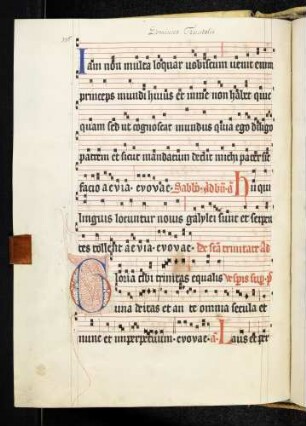 Iam non multa loquar uobiscum uenit enim
princeps mundi huius et in me non habet qiuc
quam sed ut cognoscat mundus quia ego diligo
patrem et sicut mandatum dedit michi pater sic
facio aevia. evovae. Hii qui
linguis locuntur nouis galylei sunt et serpen
tes tollent aevia. evovae. De sca trinitate Ad
Gloria tibi trinitas equalis
una deitas et an te omnia secula et
nunc et imperpetuum. evovae. Laus et per